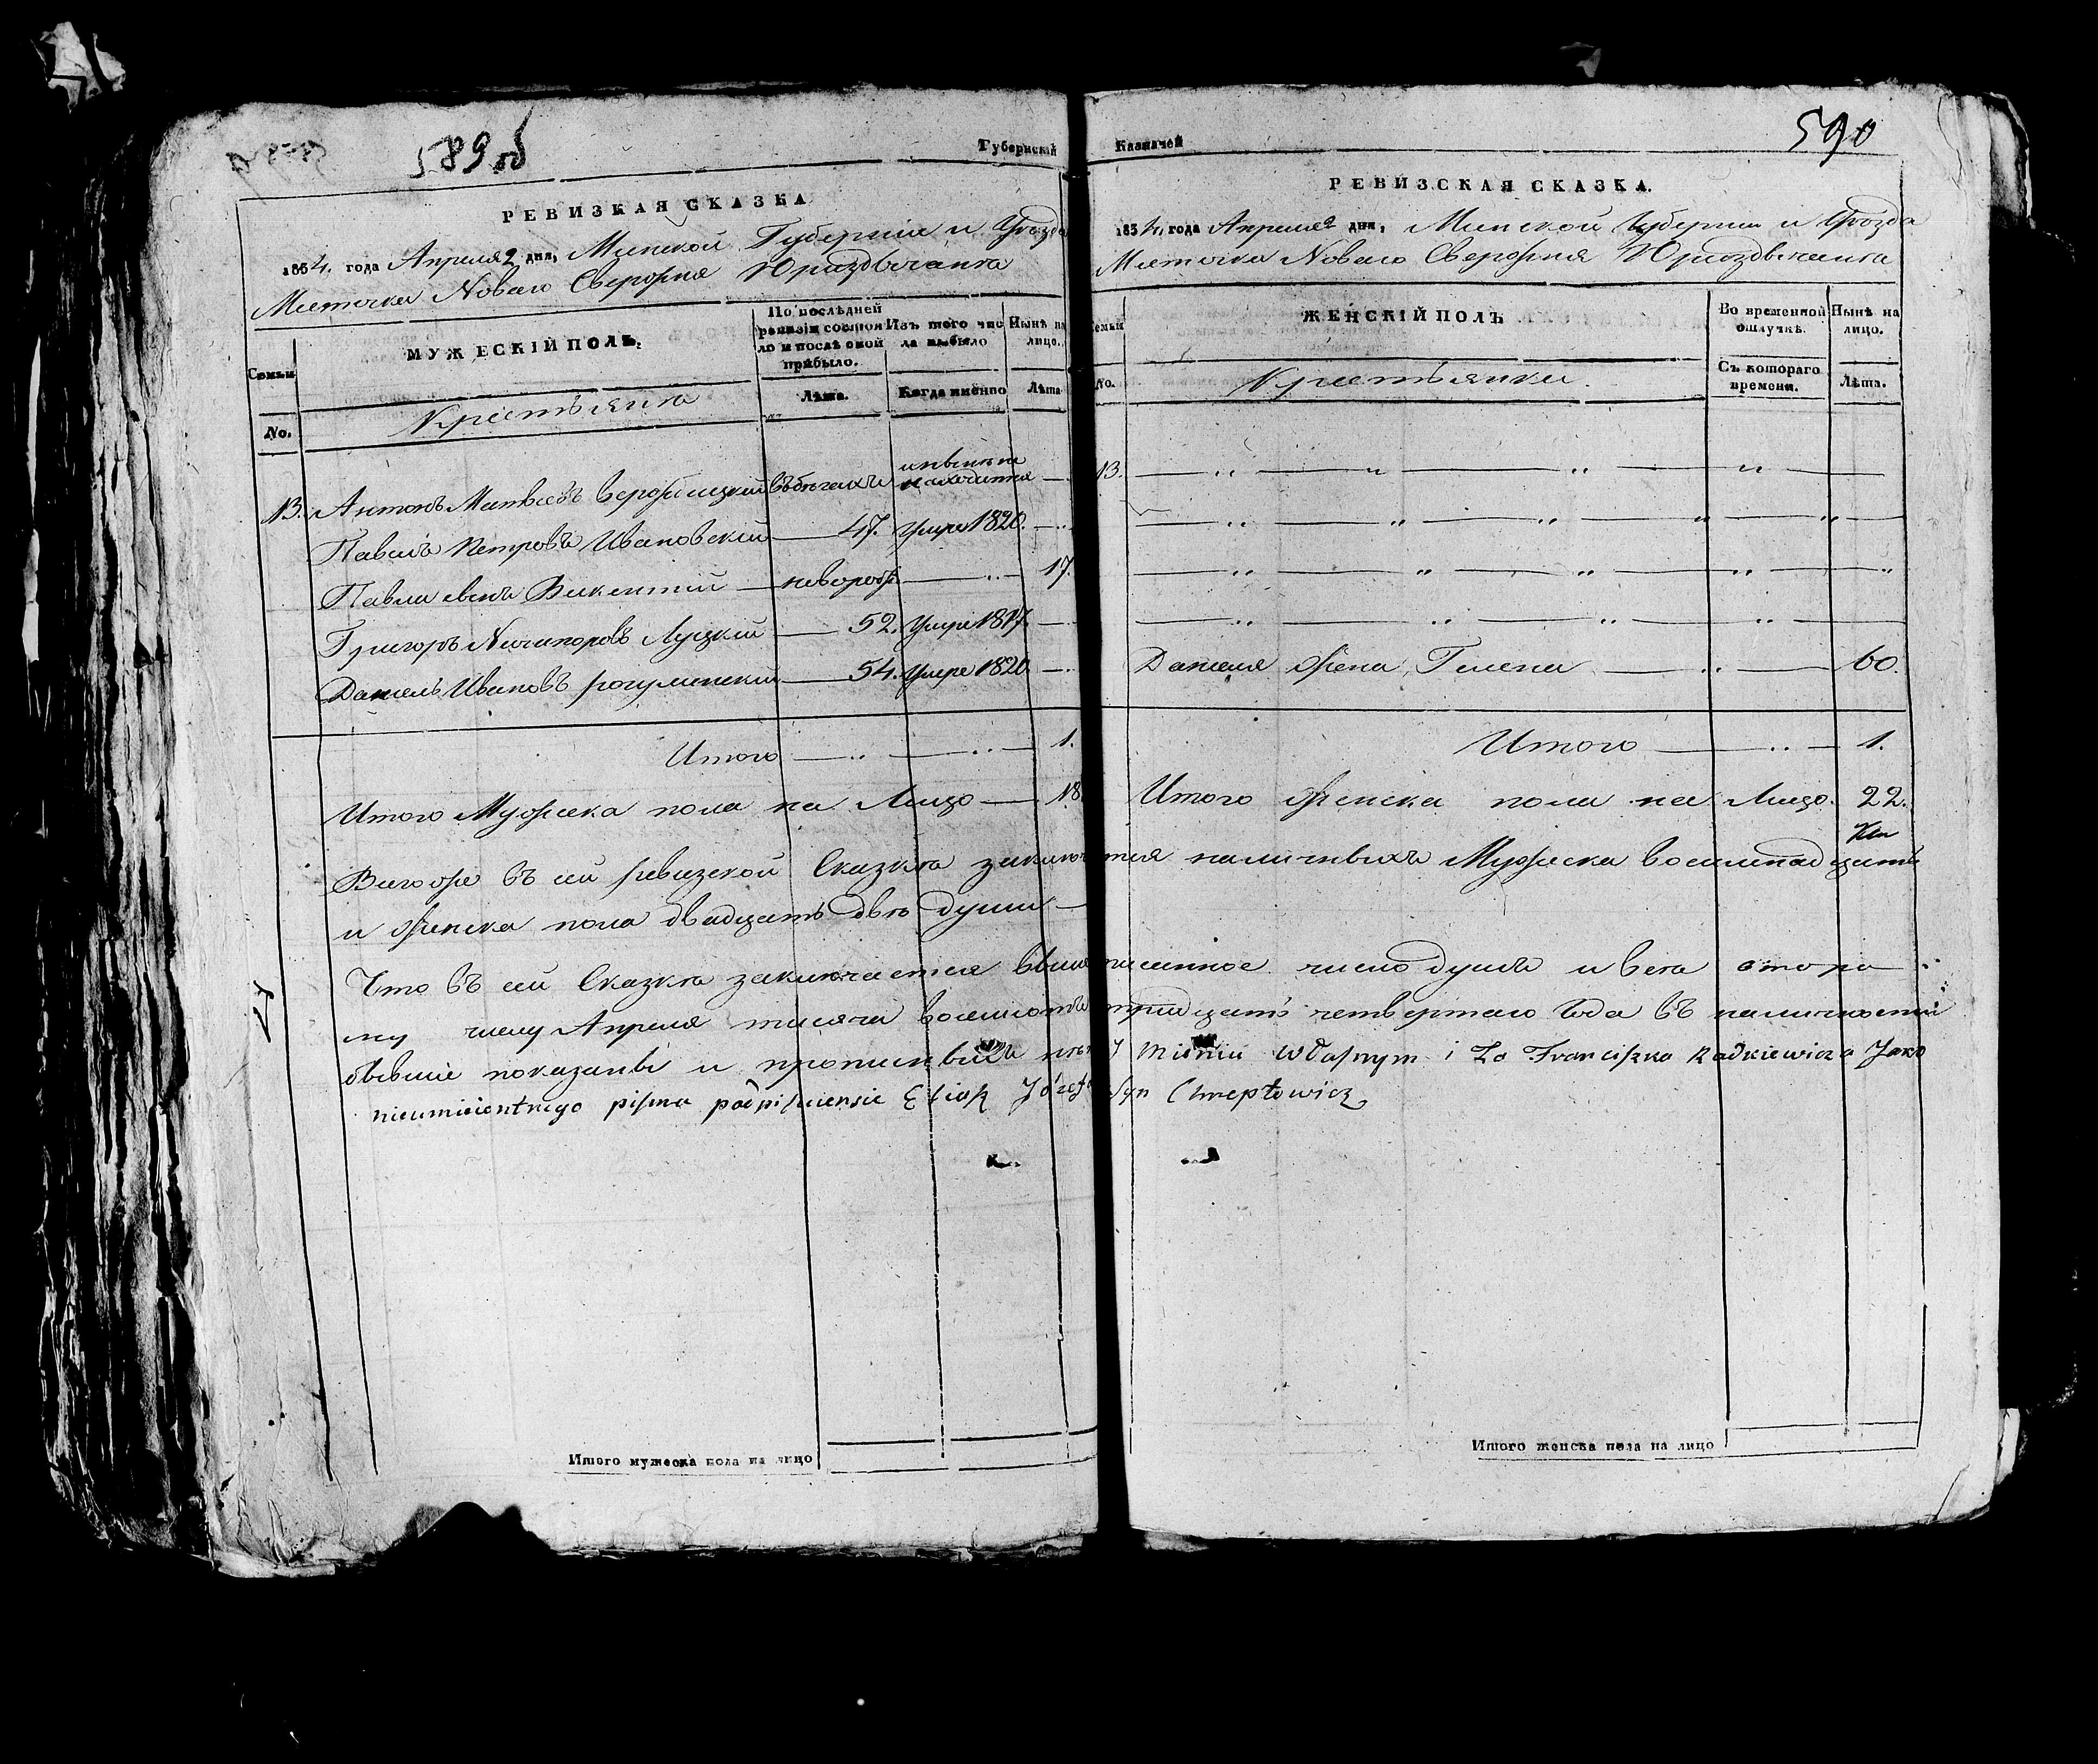 589 об
Губернскій
РЕВИЗКАЯ СКАЗКА
1834. года Апреля 2 дня, Минской Губерніи и Уѣзда
Мистечка Новаго Свержня Юриздычанка
Семьи
No.
МУЖЕСКІЙ ПОЛЪ.
Крестьяне
По послѣдней ревизіи состояло и послѣ оной прибыло.
Лѣта.
Изъ того числа выбыло
Когда именно
Нынѣ на лицо.
Лѣта
13. Антонъ Матвѣевъ въ бѣгахъ и нынѣ находится —
Павелъ Петровъ Ивановскій — 47. Умре 1820. —
Павла сынъ Викентій — неворов. — 17.
Григоръ Ничипоровъ Луцкій — 52. Умре 1817. —
Данель Ивановъ — 54. Умре 1820 —
Итого — „ — „ — 1.
Итого Мужеска пола на Лицо — 18
Казначей
590
РЕВИЗСКАЯ СКАЗКА.
1834, года Апреля 2 дня, Минской Губерніи и Уѣзда
Мистечка Новаго Свержня Юриздычанка
Семьи
No.
ЖЕНСКІЙ ПОЛЪ
Крестьянки.
Во временной отлучкѣ.
Съ котораго времени.
Нынѣ на лицо.
Лѣта.
13. — „ — „ — „ — „ —
— „ — „ — „ — „ — „ —
— „ — „ — „ — „ — „
— „ — „ — „ — „ —
Данеля жена Гелена — „ — 60.
Итого — „ — 1.
Итого женска пола на Лицо. 22.
Всего же въ сей ревизской Сказкѣ заключается наличныхъ Мужеска восемнадцать
и женска пола двадцать двѣ души —
Что въ сей Сказкѣ заключается вышеписанное число душъ и всѣ второ
му числу Апреля тисяча восемсотъ тридцать четвертаго Года въ наличности
бывшіе показаны и прописныхъ нѣтъ w Własnym i Za Franciszka Radkiewicza Jako
nieumieientnego pisma podpisuiensie Eliasz Józefa Syn Chreptowicz
Итого мужеска пола на лицо
Итого женска пола на лицо